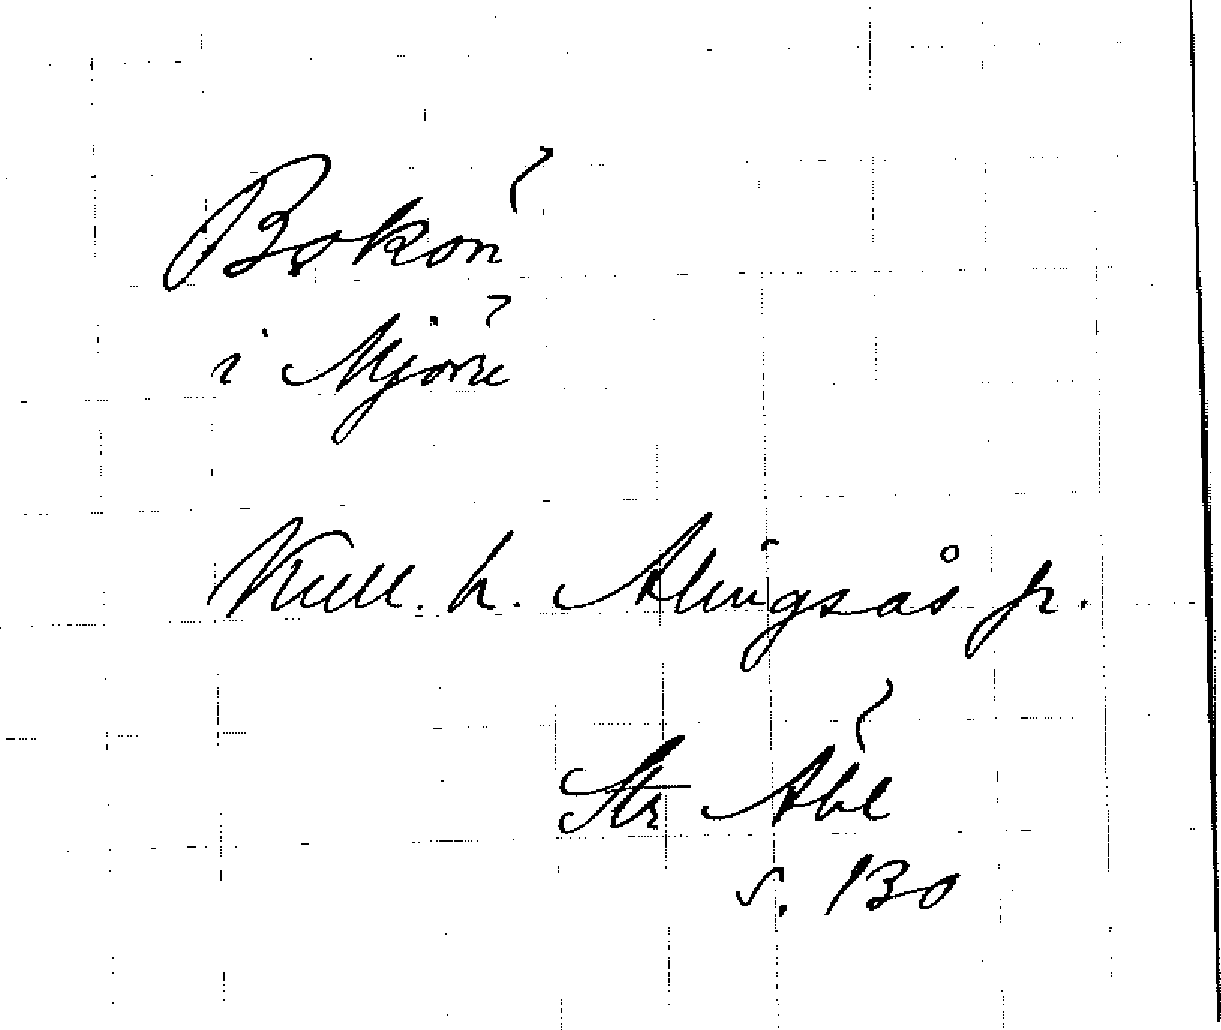 Bokön
i Mjörn
Kull. h. Alingsås fr.
Str Åbl
s. 130